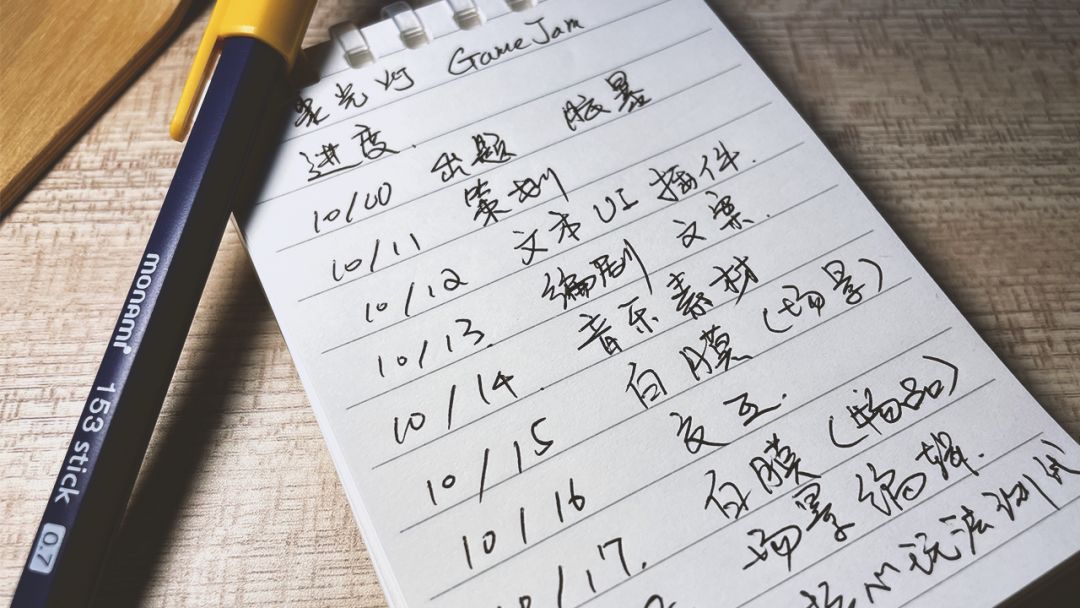 聚光灯 GameJam
进度.
10/10 出题 脑暴
10/11 策划
10/12 文本UI插件.
10/13. 编剧 文案.
10/14. 音乐素材
10/15 白膜(场景)
10/16 交互.
10/17. 白膜(物品)
场景编辑.
核心玩法
monami
153 stick
0.7